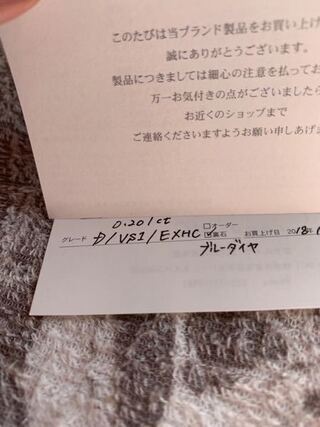 このたびは当ブランド製品をお買い上げ
誠にありがとうございます。
製品につきましては細心の注意を払ってお
万一お気付きの点がございましたら
お近くのショップまで
ご連絡くださいますようお願い申しあげま
0.201ct
グレード D/VS1/EXHC □オーダー
☑裏石 お買上げ日 2018年
ブルーダイヤ